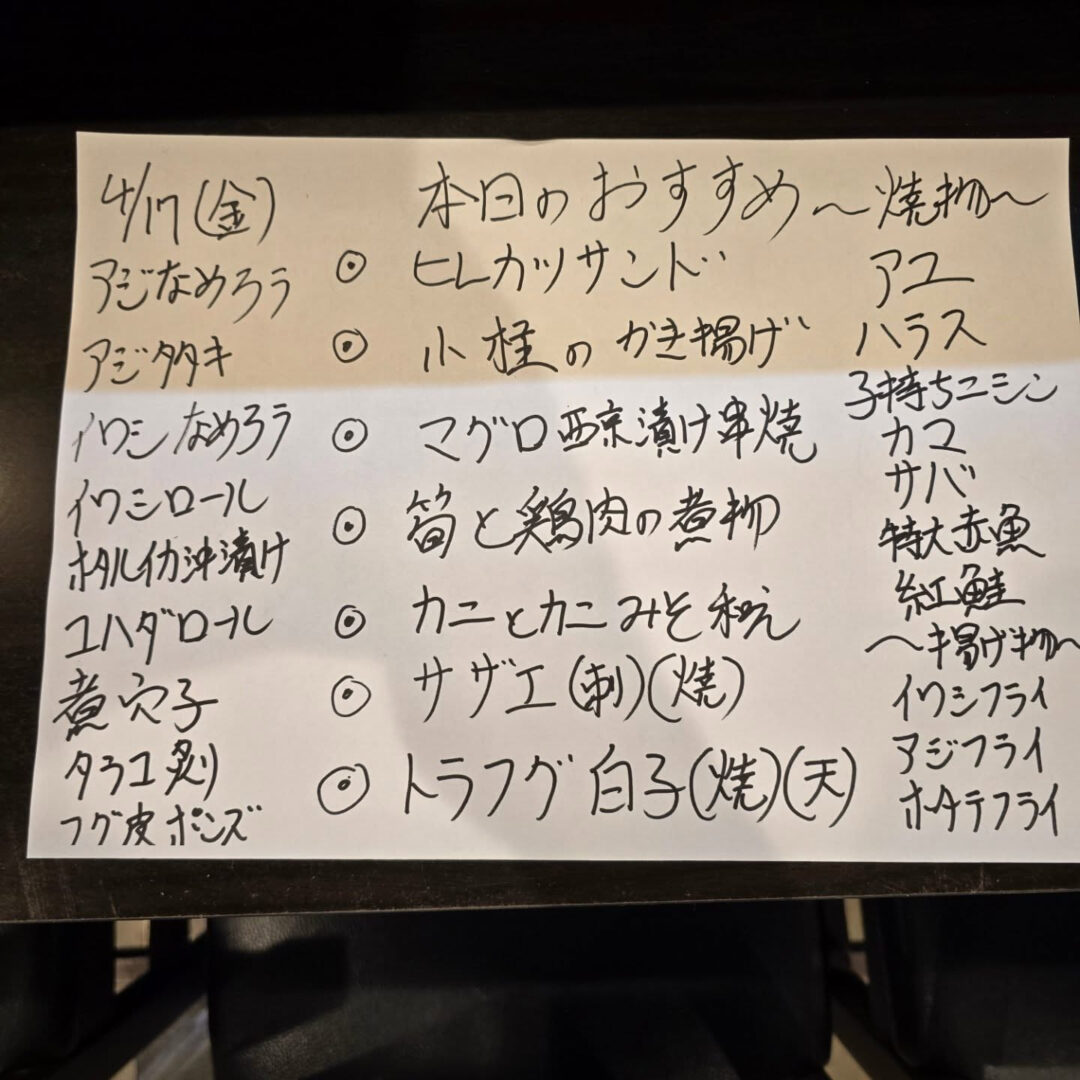 4/17(金)
アジなめろう
アジタタキ
イワシなめろう
イワシロール
ホタルイカ沖漬け
コハダロール
煮穴子
タラコ炙り
フグ皮ポンズ
本日のおすすめ
◎ ヒレカツサンド
◎ 小柱のかき揚げ
◎ マグロ西京漬け串焼
◎ 筍と鶏肉の煮物
◎ カニとカニみそ和え
◎ サザエ(刺)(焼)
◎ トラフグ白子(焼)(天)
〜焼物〜
アユ
ハラス
子持ちニシン
カマ
サバ
特大赤魚
紅鮭
〜揚げ物〜
イワシフライ
アジフライ
ホタテフライ